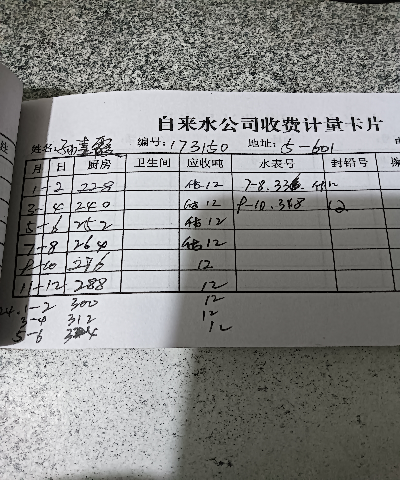 自来水公司收费计量卡片
姓名: 编号: 173150 地址: 5-601
月 日 厨房 卫生间 应收吨 水表号 封铅号
1-2 228 估12 7-8.336 估12
3-4 240 估12 9-10.348 12
5-6 252 估12
7-8 264 估12
9-10 276 12
11-12 288 12
24.1-2 300 12
3-4 312 12
5-6 324 12